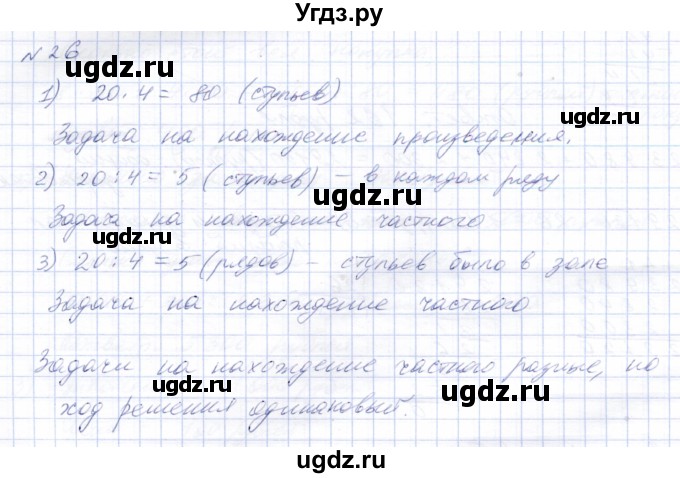 Угдз.ру
№ 26
1) 20 · 4 = 80 (стульев)
Задача на нахождение произведения.
2) 20 : 4 = 5 (стульев) – в каждом ряду
Задача на нахождение частного
3) 20 : 4 = 5 (рядов) – стульев было в зале
Задача на нахождение частного
Задачи на нахождение частного разные, но
ход решения одинаковый.
ugdz.ru
ugdz.ru
ugdz.ru
ugdz.ru
ugdz.ru
ugdz.ru
ugdz.ru
ugdz.ru
ugdz.ru